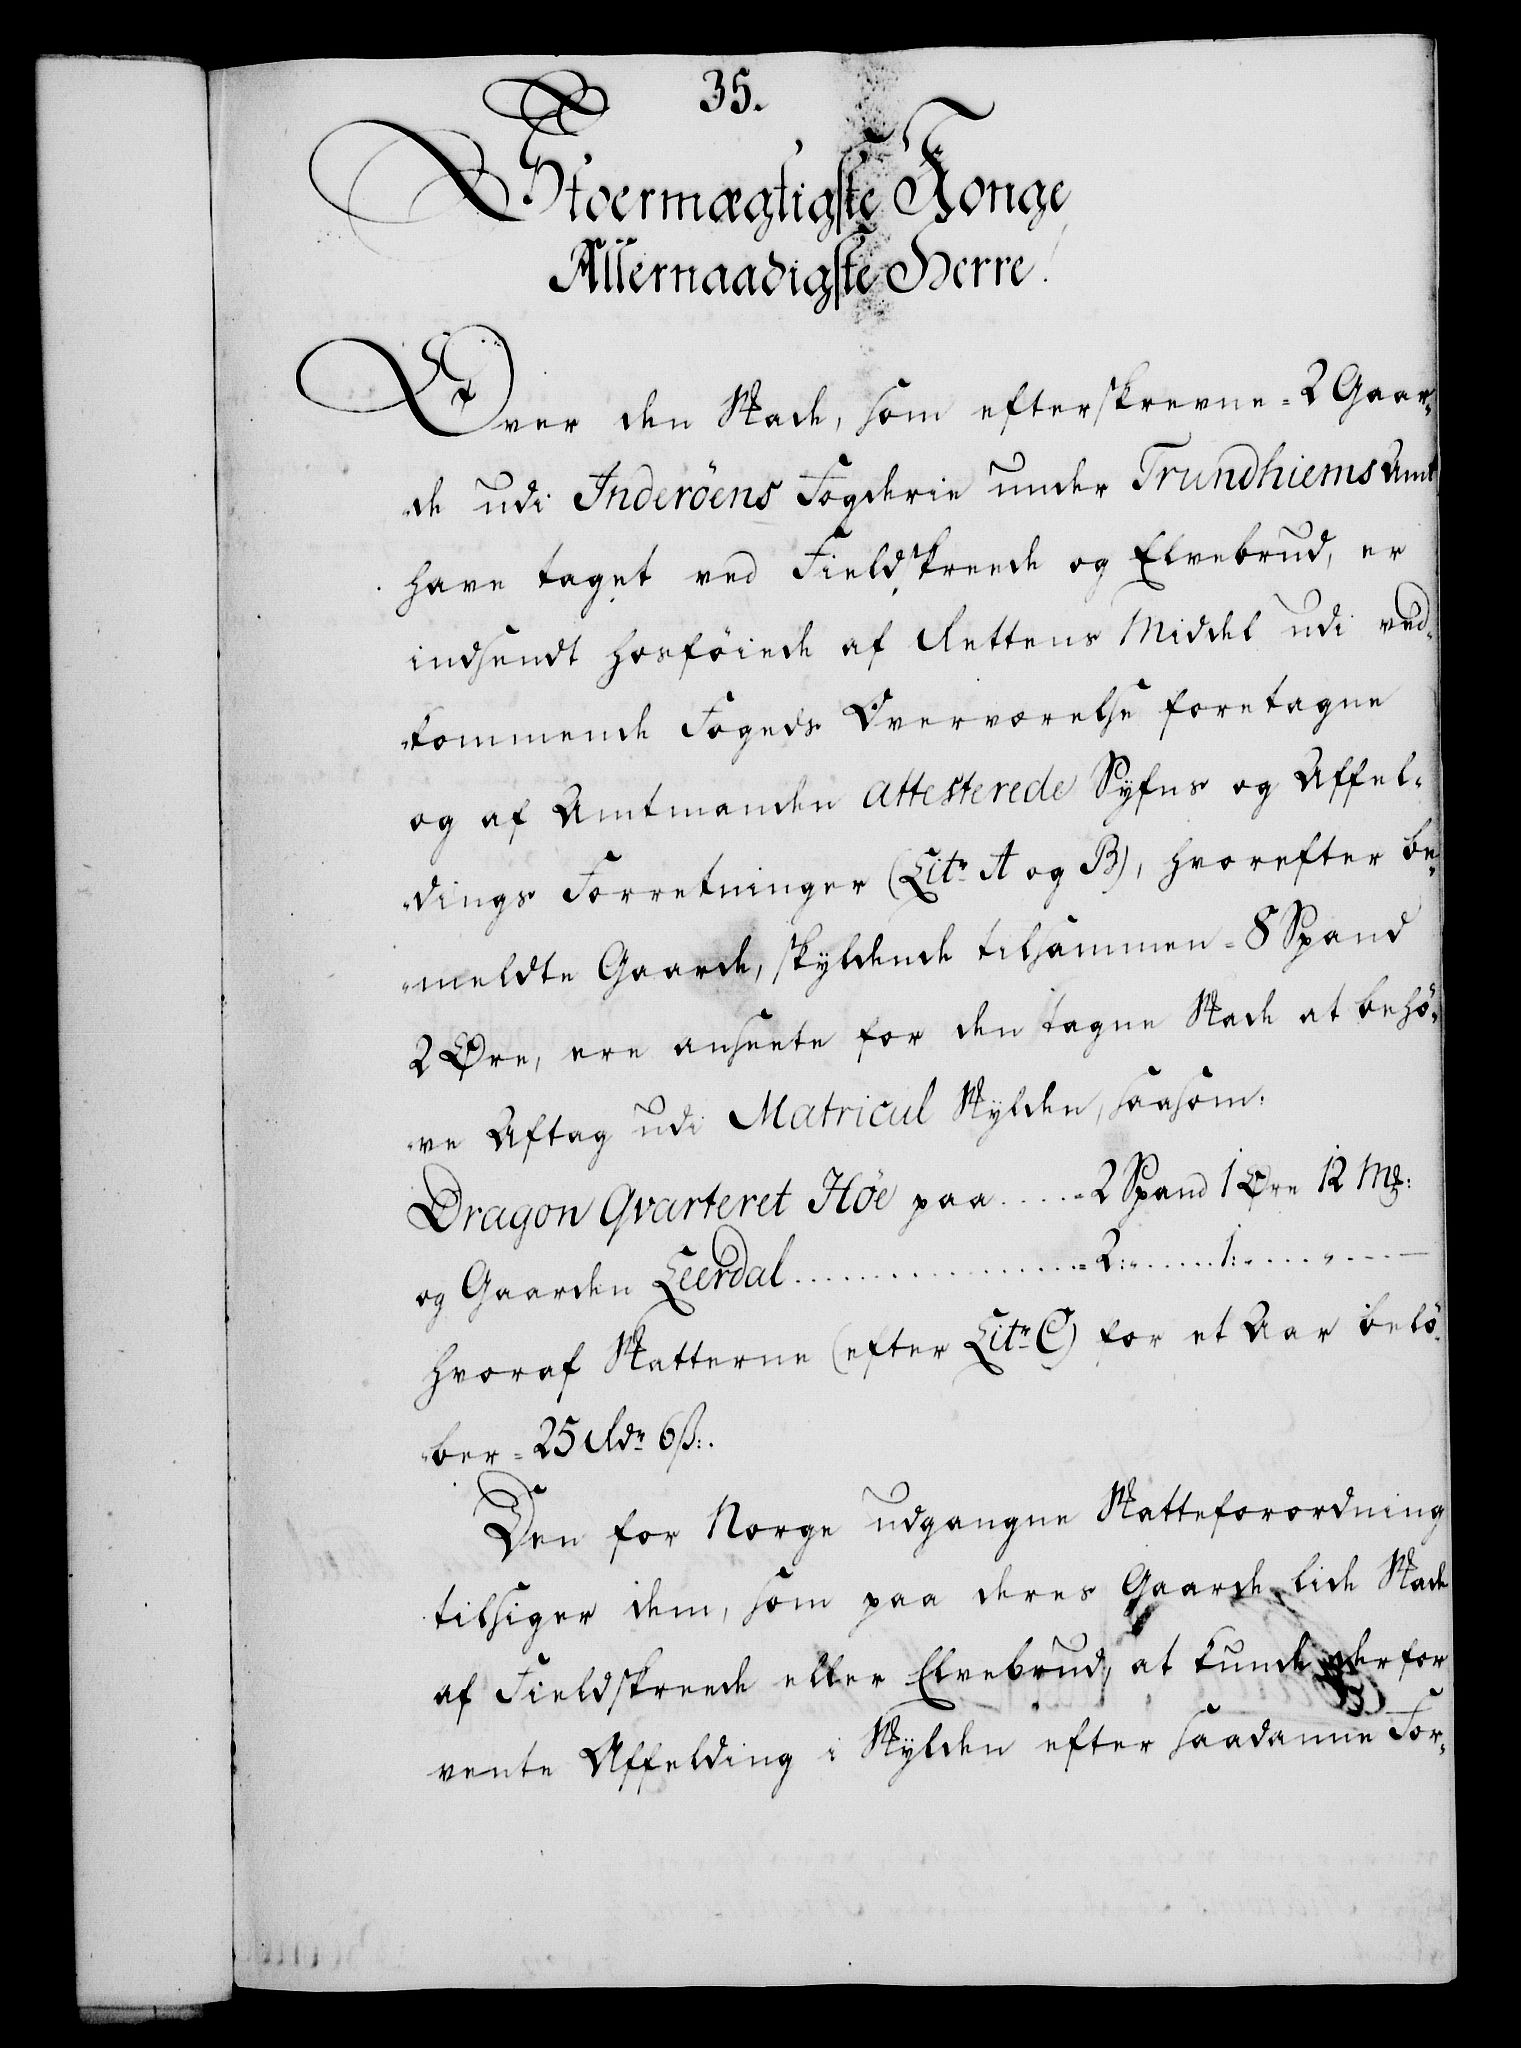 35.
Stoermægtigste Konge
Allernaadigste Herre!
Over den Skade, som efterskrevne = 2 Gaar-
de udi Inderöens Fogderie under Trundhiems Amt
have taget ved Fieldskreede og Elvebrud, er
indsendt hosföiede af Rettens Middel udi ved-
kommende Fogeds Overværelse foretagne
og af Amtmanden attesterede Syfns og Affel-
dings Forretninger (Litr A og B), hvorefter be-
meldte Gaarde, skyldende tilsammen = 8 Spand
2 Øre, ere anseete for den tagne Skade at behö-
ve Aftag udi Matricul Skylden, saasom:
Dragon Qvarteret Höe paa ..... = 2 Spand 1 Øre 12 Mk:
og Gaarden Leerdal .................. = 2: ...... 1: ...... „ ---
hvoraf Skatterne (efter Litr C) for et Aar belö-
ber = 25 Rdr 6 ß:.
Den for Norge udgangne Skatteforordning
tilsiger dem, som paa deres Gaarde lide Skade
af Fieldskreede eller Elvebrud, at kunde derfor
vente Affelding i Skylden efter saadanne For-